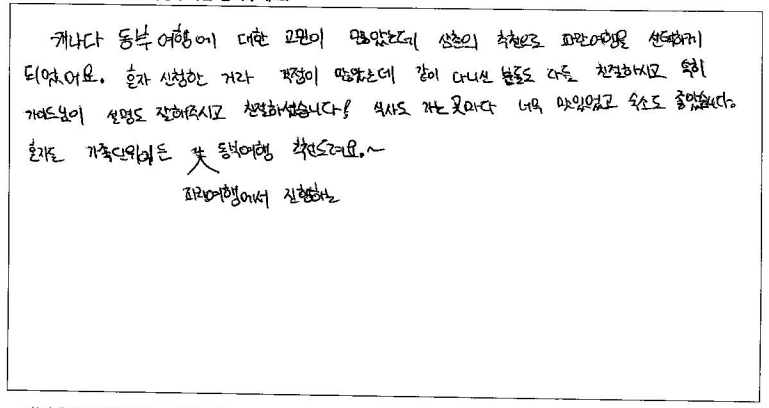 캐나다 동부여행에 대한 고민이 많았는데 삼촌의 추천으로 파란여행을 선택하게
되었어요. 혼자 신청한 거라 걱정이 많았는데 같이 다니신 분들도 다들 친절하시고 특히
가이드님이 설명도 잘해주시고 친절하셨습니다! 식사도 가는 곳마다 너무 맛있었고 숙소도 좋았습니다.
혼자든 가족단위이든 꼭 동부여행 추천드려요.~
파란여행에서 진행하는